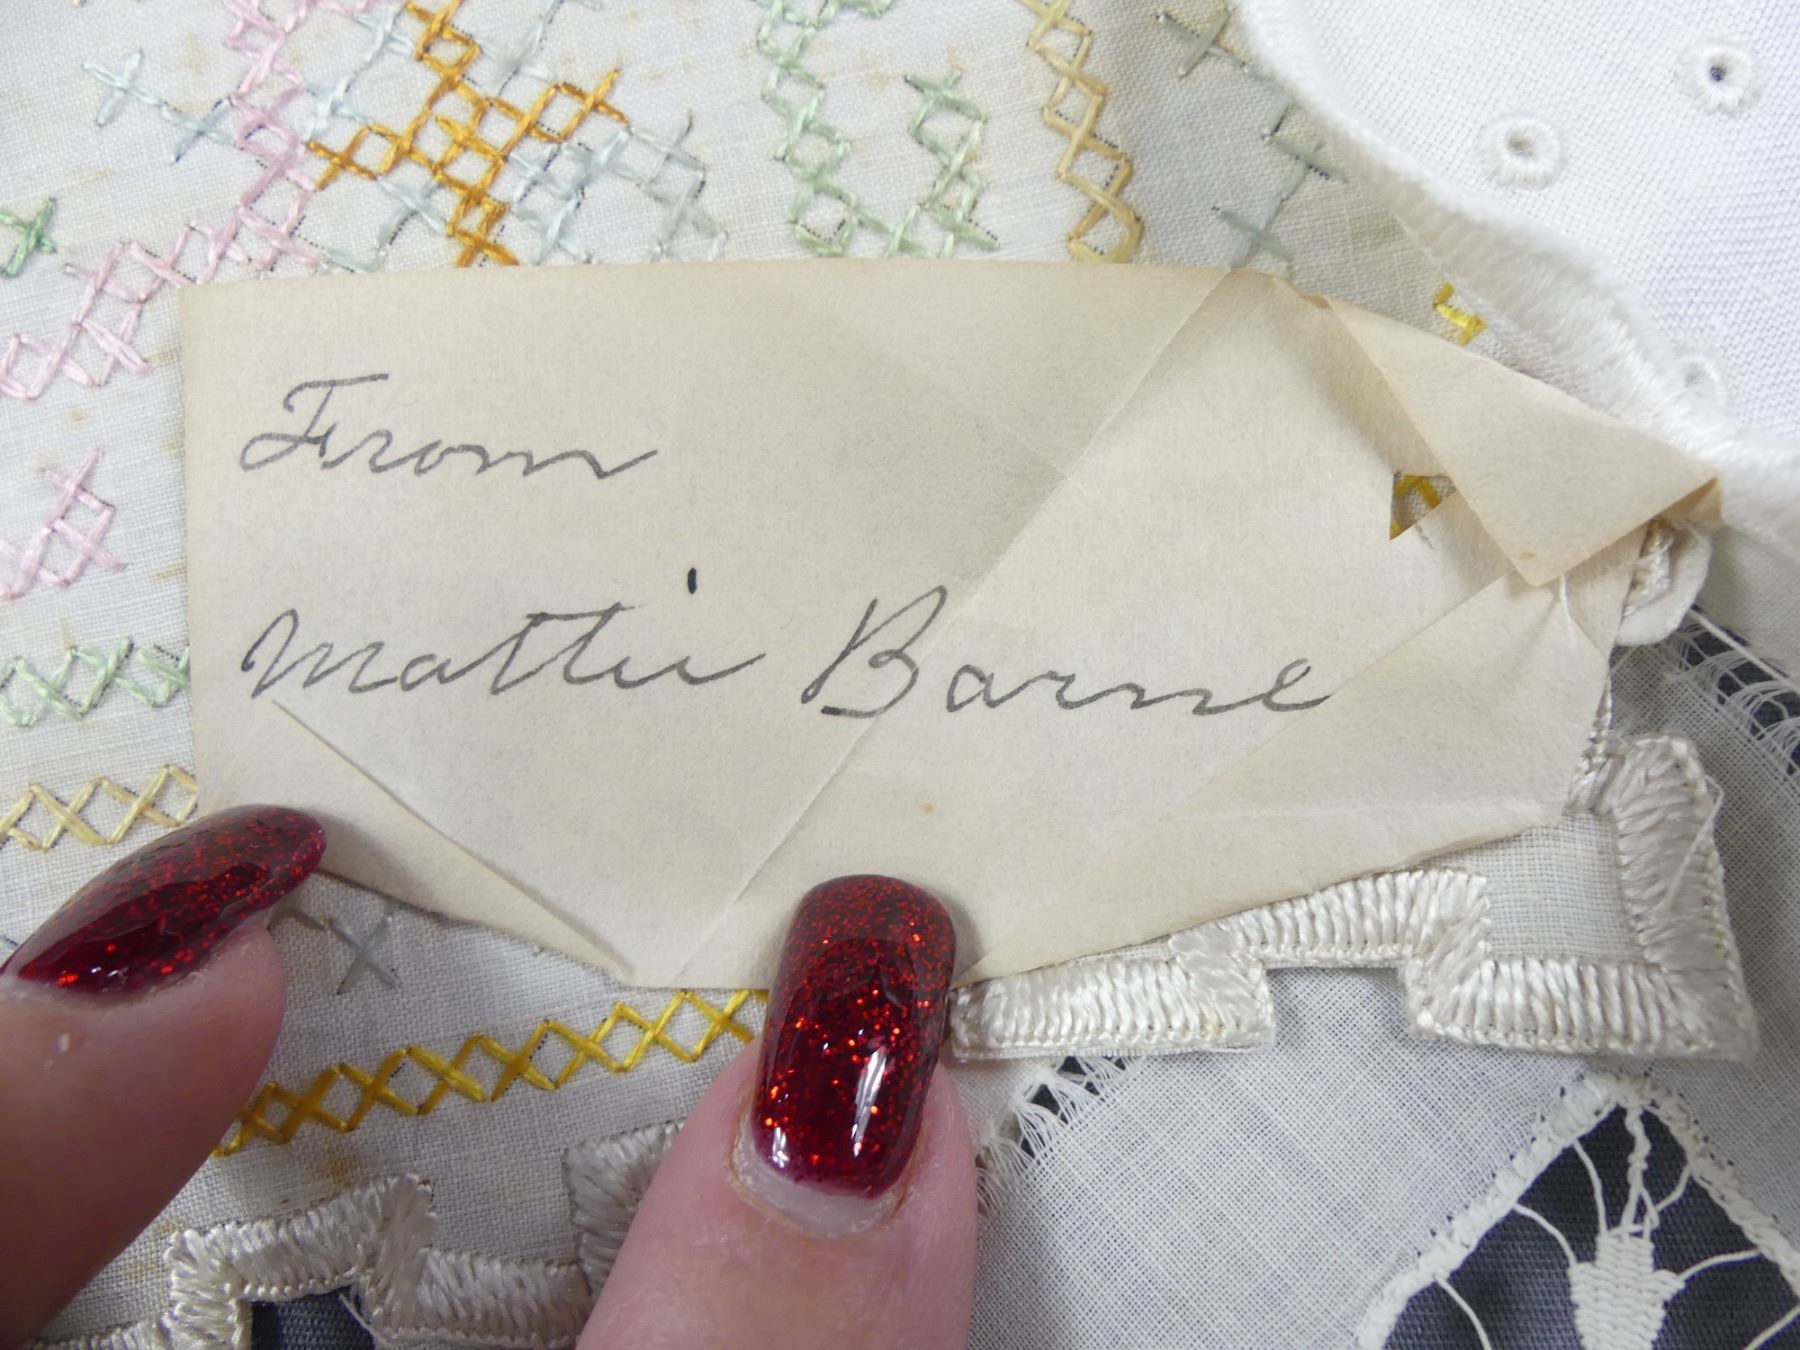 From
Mattie Barne